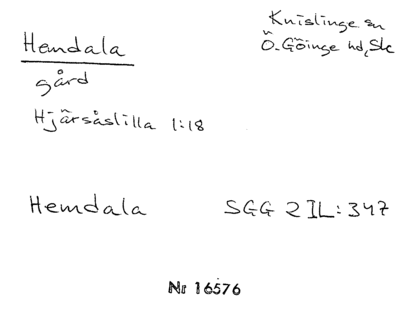 Hemdala
Knislinge sn
Ö. Göinge hd, Sk
gård
Hjärsåslilla 1:18
Hemdala SGG 2 IL:347
Nr 16576